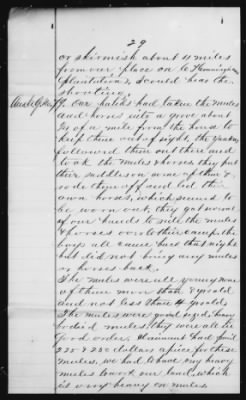 29
or skirmish about 4 miles
from our place on Le Flemming
plantation, I could hear the
shooting.
Our hands had taken the mules
and horses into a grove about
3/4 of a mile from the house to
keep them out of sight, the yankees
followed them out there and
took the mules & horses they put
their saddles on some of them &
rode them off and led their
own horses, which seemed to
be worn out, they got some
of our hands to ride the mules
& horses over to their camp, the
boys all came back that night
but did not bring any mules
or horses back.
The mules were all young none
of them more than 8 yrs old
and not less than 4 yrs old,
The mules were good sized, heavy
bodied mules, they were all in
good order, Claimant had paid
225 & 250 dollars apiece for these
mules, we had to have very heavy
mules to work our land, which
is very heavy on mules